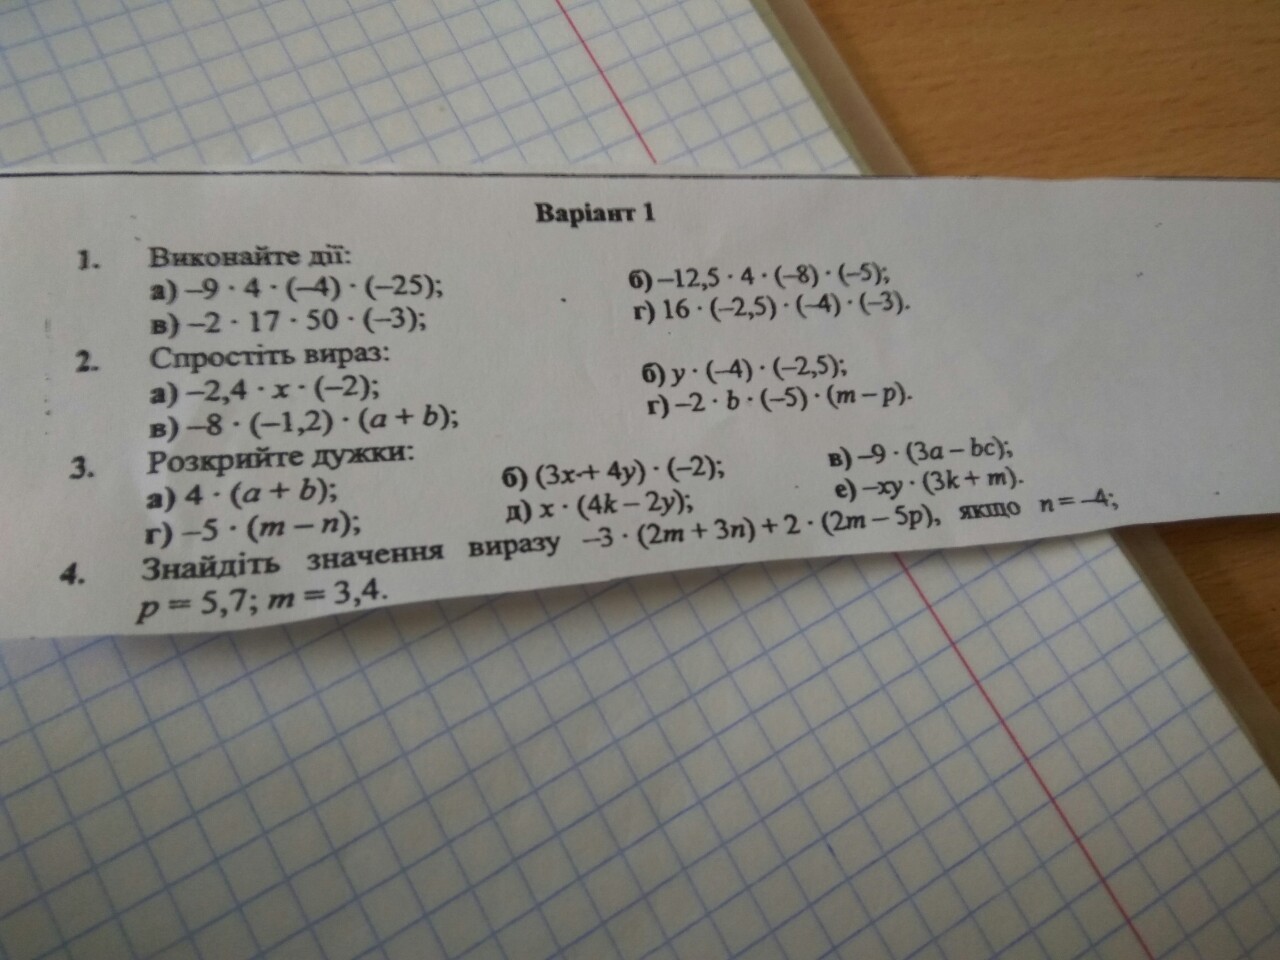 Варіант 1
1. Виконайте дії:
а) –9 · 4 · (–4) · (–25); б) –12,5 · 4 · (–8) · (–5);
в) –2 · 17 · 50 · (–3); г) 16 · (–2,5) · (–4) · (–3).
2. Спростіть вираз:
а) –2,4 · x · (–2); б) y · (–4) · (–2,5);
в) –8 · (–1,2) · (a + b); г) –2 · b · (–5) · (m – p).
3. Розкрийте дужки:
а) 4 · (a + b); б) (3x + 4y) · (–2); в) –9 · (3a – bc);
г) –5 · (m – n); д) x · (4k – 2y); е) –xy · (3k + m).
4. Знайдіть значення виразу –3 · (2m + 3n) + 2 · (2m – 5p), якщо n = –4;
p = 5,7; m = 3,4.